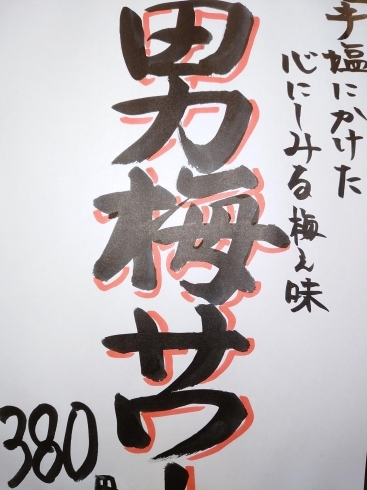 手塩にかけた
心にしみる梅ぇ味
男梅サワー
380円